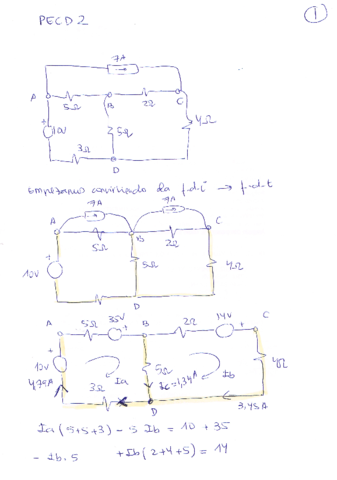 PECD2
1
7A
A
5Ω
B
2Ω
C
+
10V
5Ω
4Ω
3Ω
D
Empezamos convirtiendo la f.d.i → f.d.t
7A
7A
A
5Ω
B
2Ω
C
10V
+
5Ω
4Ω
D
A
5Ω
35V
+
B
2Ω
14V
+
C
+
10V
4,79A
Ia
5Ω
Ic=1,34A
Ib
4Ω
3Ω
D
3,45A
Ia (5+5+3) - 5 Ib = 10 + 35
- Ia . 5 + Ib (2+4+5) = 14